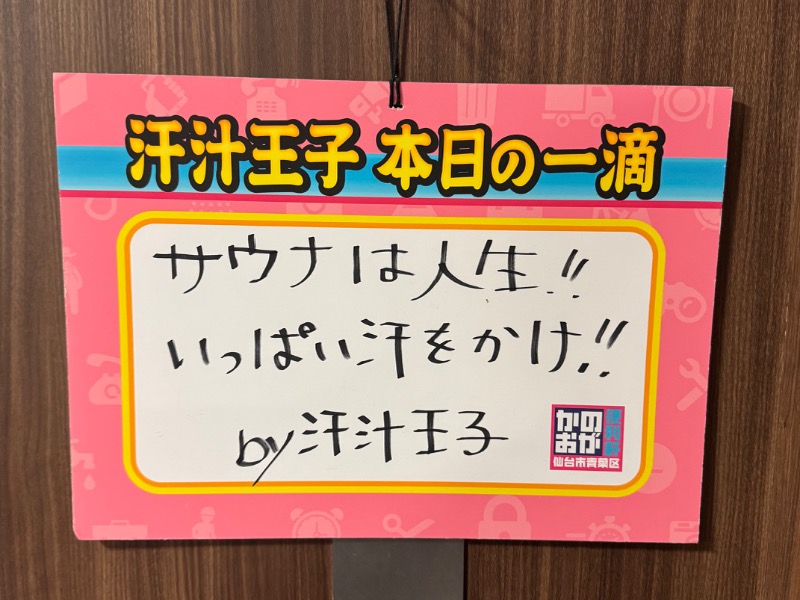 汗汁王子 本日の一滴
サウナは人生!!
いっぱい汗をかけ!!
by汗汁王子
かの
おが
仙台市青葉区